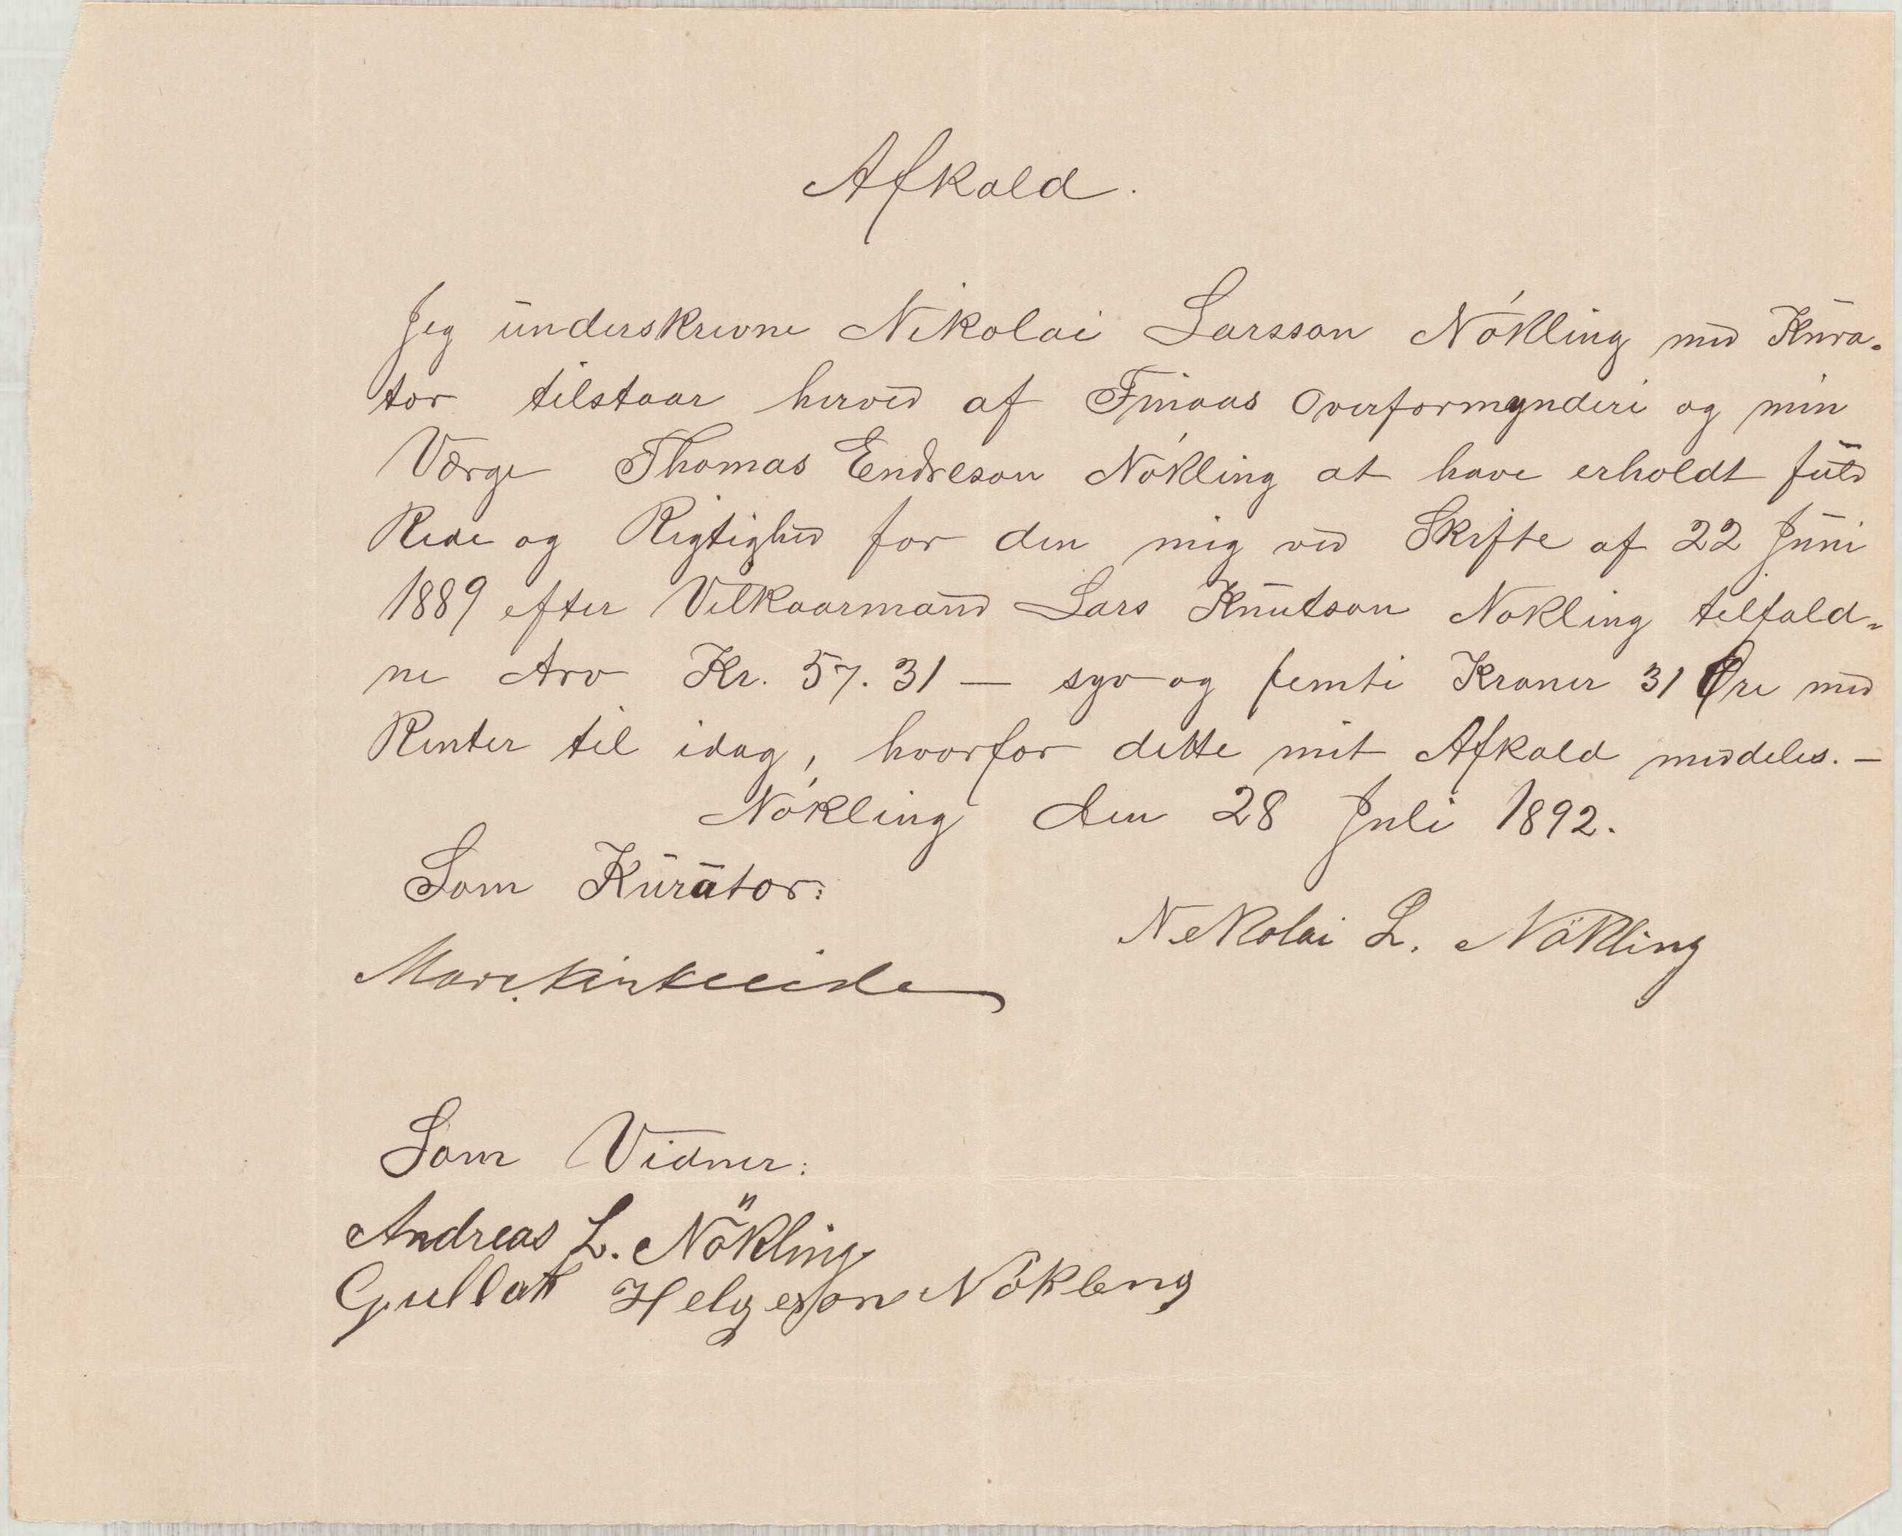 Afkald.
Jeg underskrevne Nikolai Larsson Nökling med Kura-
tor tilstaar herved af Finaas Overformynderi og min
Værge Thomas Endreson Nökling at have erholdt fuld
Rede og Rigtighed for den mig ved Skifte af 22 Juni
1889 efter Vilkaarmand Lars Knutson Nökling tilfald-
ne Arv Kr. 57.31 — syv og femti Kroner 31 Øre med
Renter til idag, hvorfor dette mit Afkald meddeles. —
Nökling den 28 Juli 1892.
Som Kurator:
Nekolai L. Nökling
Som Vidner:
Andreas L. Nökling
Gullak Helgeson Nökleng